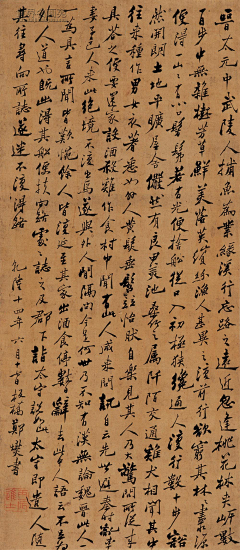 晉太元中武陵人捕魚為業緣溪行忘路之遠近忽逢桃花林夾岸數
百步中無雜樹芳草鮮美落英繽紛漁人甚異之復前行欲窮其林林盡水源
便得一山山有小口髣髴若有光便捨船從口入初極狹纔通人復行數十步豁
然開朗土地平曠屋舍儼然有良田美池桑竹之屬阡陌交通雞犬相聞其中
往來種作男女衣著悉如外人黃髮垂髫並怡然自樂見漁人乃大驚問所從來
具答之便要還家設酒殺雞作食村中聞有此人咸來問訊自云先世避秦時亂率
妻子邑人來此絕境不復出焉遂與外人間隔問今是何世乃不知有漢無論魏晉此人
一一為具言所聞皆歎惋餘人皆復延至其家出酒食停數日辭去此中人語云不足為
外人道也既出得其船便扶向路處處誌之及郡下詣太守說如此太守即遣人隨
其往尋向所誌遂迷不復得路
乾隆十四年六月十 板橋鄭燮書